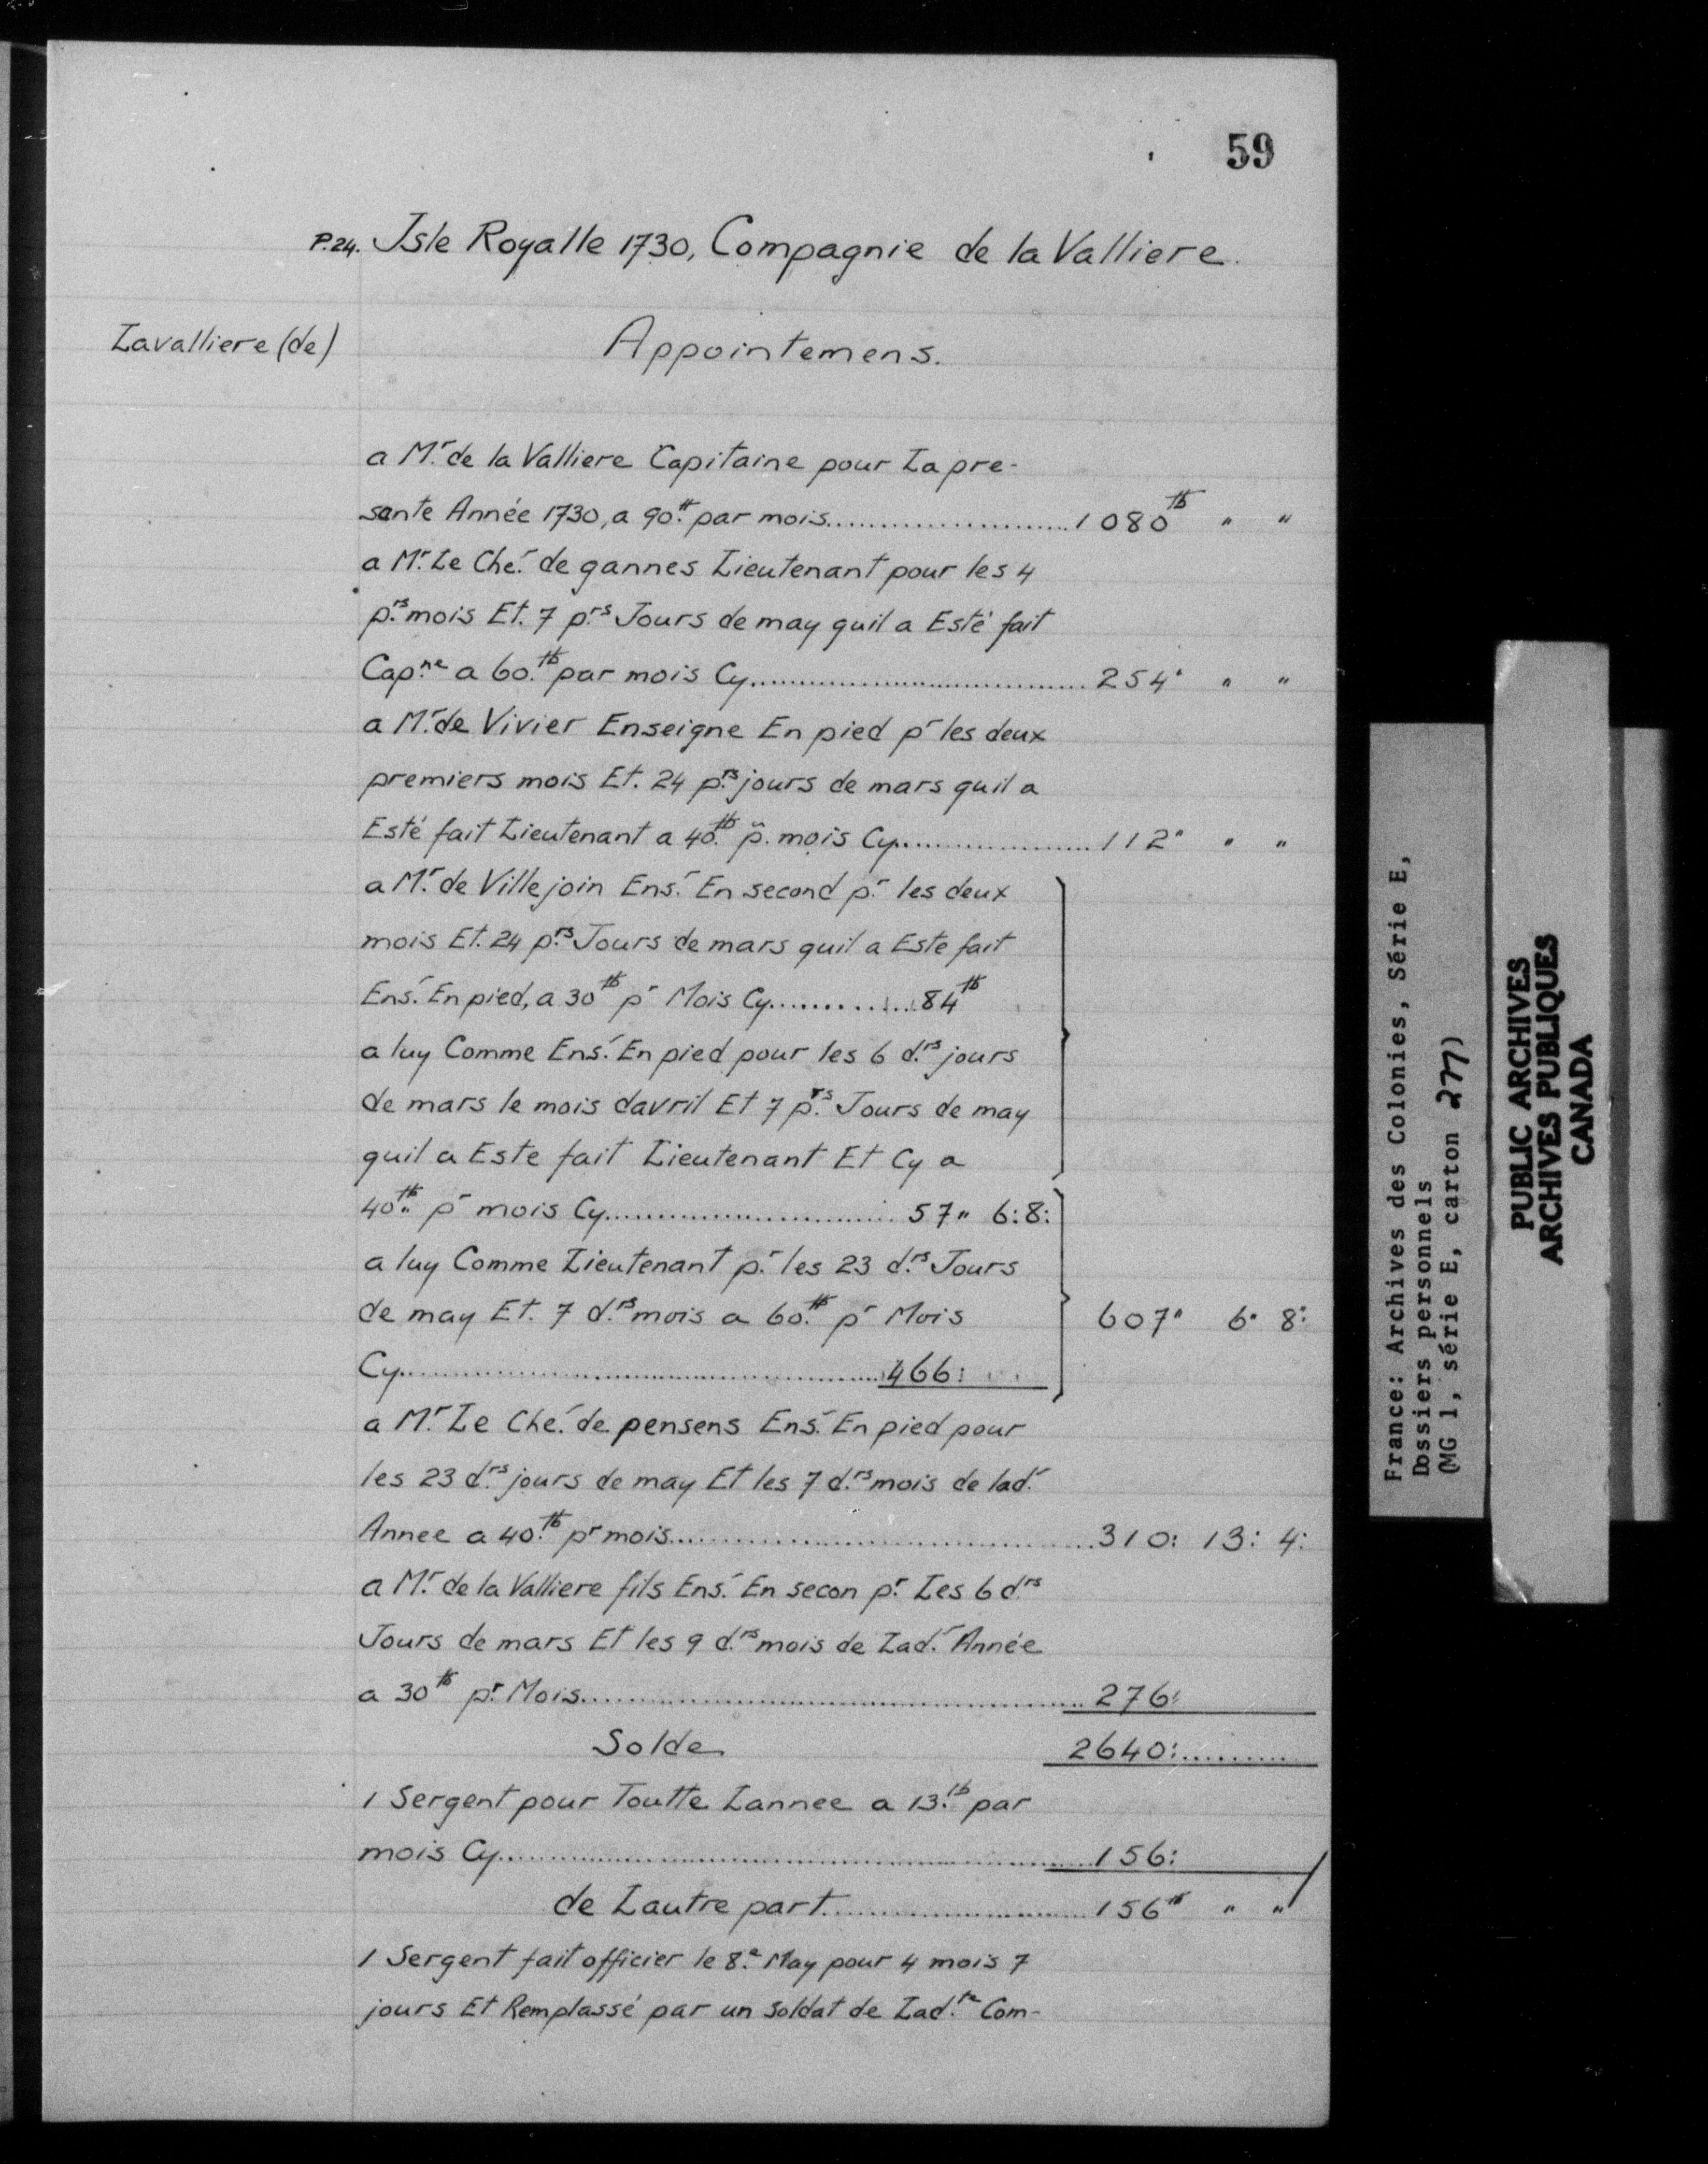 59
P.24. Isle Royalle 1730, Compagnie de la Valliere.
Lavalliere (de)
Appointemens.
a Mr. de la Valliere Capitaine pour La pre-
sante Année 1730, a 90.tt par mois........................1080tt " "
a Mr. Le Che.r de gannes Lieutenant pour les 4
p.rs mois Et. 7 p.rs Jours de may quil a Esté fait
Cap.ne a 60.tt par mois Cy.................................254" " "
a Mr. de Vivier Enseigne En pied pr les deux
premiers mois Et. 24 p.rs jours de mars quil a
Esté fait Lieutenant a 40.tt p. mois Cy...................112" " "
a Mr. de Villejoin Ens.r En second p.r les deux
mois Et. 24 p.rs Jours de mars quil a Este fait
Ens.r En pied, a 30tt pr Mois Cy..............84tt
a luy Comme Ens.r En pied pour les 6 d.rs jours
de mars le mois davril Et 7 p.rs Jours de may
quil a Este fait Lieutenant Et Cy a
40tt" pr mois Cy............................57" 6:8:
a luy Comme Lieutenant p.r les 23 d.rs Jours
de may Et. 7 d.rs mois a 60.tt pr Mois 607" 6" 8:
Cy................................................466:
a Mr. Le Che.r de pensens Ens.r En pied pour
les 23 d.rs jours de may Et les 7 d.rs mois de lad.r
Annee a 40.tt pr mois.........................................310: 13: 4:
a Mr. de la Valliere fils Ens.r En secon p.r Les 6 drs
Jours de mars Et les 9 d.rs mois de Lad.r Année
a 30tt p.r Mois.................................................276:
Solde 2640:..........
1 Sergent pour Toutte Lannee a 13.tt par
mois Cy...........................................................156:
de Lautre part..........................156tt " "
1 Sergent fait officier le 8.e May pour 4 mois 7
jours Et Remplassé par un soldat de Lad.te Com-
France: Archives des Colonies, Série E,
Dossiers personnels
(MG 1, série E, carton 277)
PUBLIC ARCHIVES
ARCHIVES PUBLIQUES
CANADA